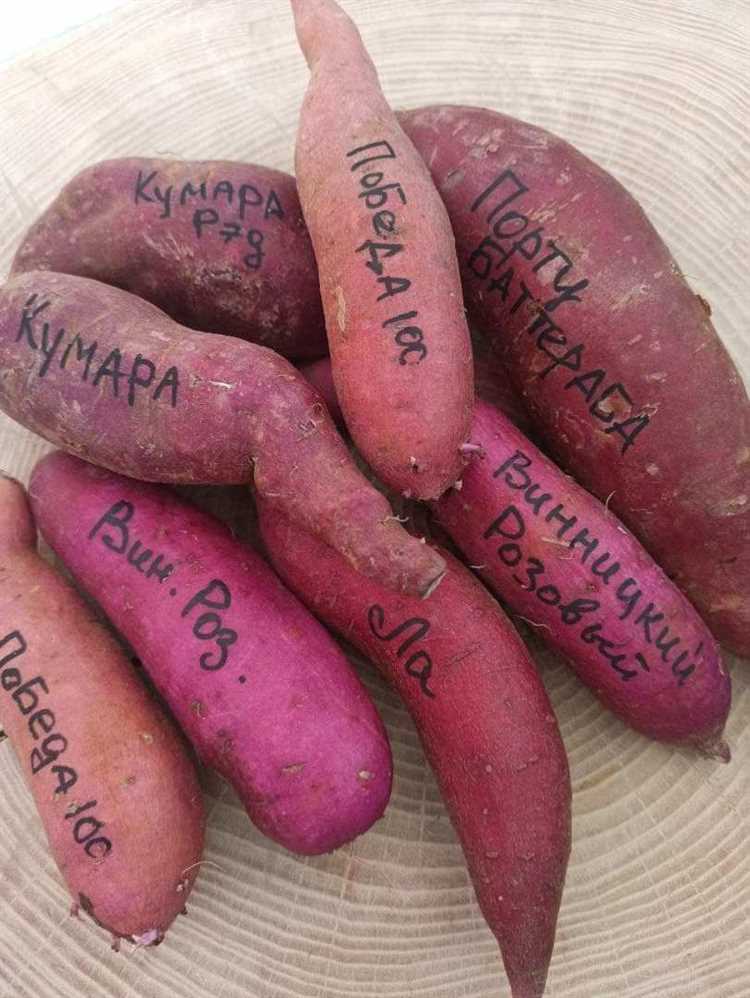 Кумара
Рэд
Победа 100
Порту
Баттераба
Кумара
Вин. Роз.
Винницкий
Розовый
Ла
Победа 100